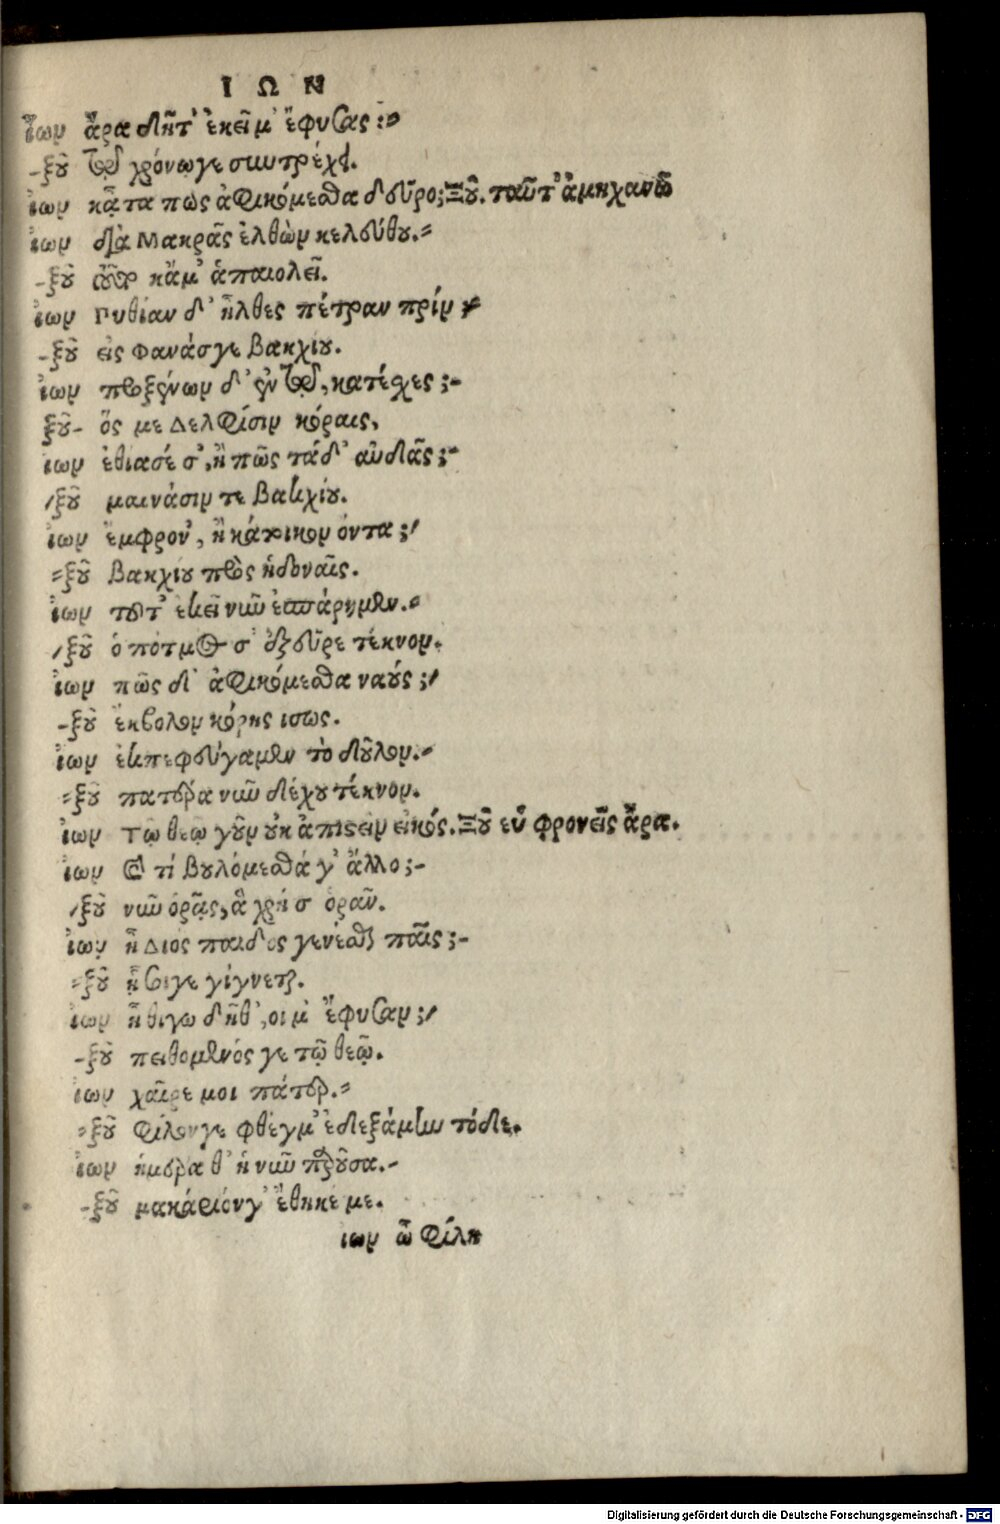 ΙΩΝ
ἴων ἆρα δῆτ' ἐκεῖ μ' ἔφυσας;
ξοῦ τῷ χρόνῳ γε συντρέχει.
ἴων κᾆτα πῶς ἀφικόμεσθα δεῦρο; Ξοῦ. ταῦτ' ἀμηχανῶ
ἴων διὰ Μακρᾶς ἐλθὼν κελεύθου.
ξοῦ κἄμ' ἀπαιολεῖ.
ἴων Πυθίαν δ' ἦλθες πέτραν πρίν
ξοῦ εἰς Φανάς γε Βακχίου.
ἴων προξένων δ' ἔν του, κατέσχες;
ξοῦ ὅς με Δελφίσιν κόραις,
ἴων ἐθιασέ σ', ἢ πῶς τάδ' αὐδᾶς;
ξοῦ μαινάσιν τε Βακχίου.
ἴων ἔμφρον', ἢ κάτοικον ὄντα;
ξοῦ Βακχίου πρὸς ἡδοναῖς.
ἴων τοῦτ' ἐκεῖ νῦν ἐσπάρημεν.
ξοῦ ὁ πότμος σ' ἐξεῦρε τέκνον.
ἴων πῶς δ' ἀφικόμεσθα ναούς;
ξοῦ ἔκβολον κόρης ισως.
ἴων ἐκπεφεύγαμεν τὸ δοῦλον.
ξοῦ πατέρα νῦν δέχου τέκνον.
ἴων Τῷ θεῷ γοῦν οὐκ ἀπιστεῖν εἰκός. Ξοῦ εὖ φρονεῖς ἆρα.
ἴων καὶ τί βουλόμεσθά γ' ἄλλο;
ξοῦ νῦν ὁρᾷς, ἃ χρή σ' ὁρᾶν.
ἴων ἢ Διὸς παιδὸς γενέσθαι παῖς;
ξοῦ ᾗ σοι γε γίγνεται.
ἴων ἦ θιγω δῆθ', οἵ μ' ἔφυσαν;
ξοῦ πειθόμενός γε τῷ θεῷ.
ἴων χαῖρε μοι πάτερ.
ξοῦ φίλον γε φθέγμ' ἐδεξάμην τόδε.
ἴων ἡμέρα θ' ἡ νῦν παροῦσα.
ξοῦ μακάριόν γ' ἔθηκέ με.
ἴων ὦ φίλη
Digitalisierung gefördert durch die Deutsche Forschungsgemeinschaft - DFG